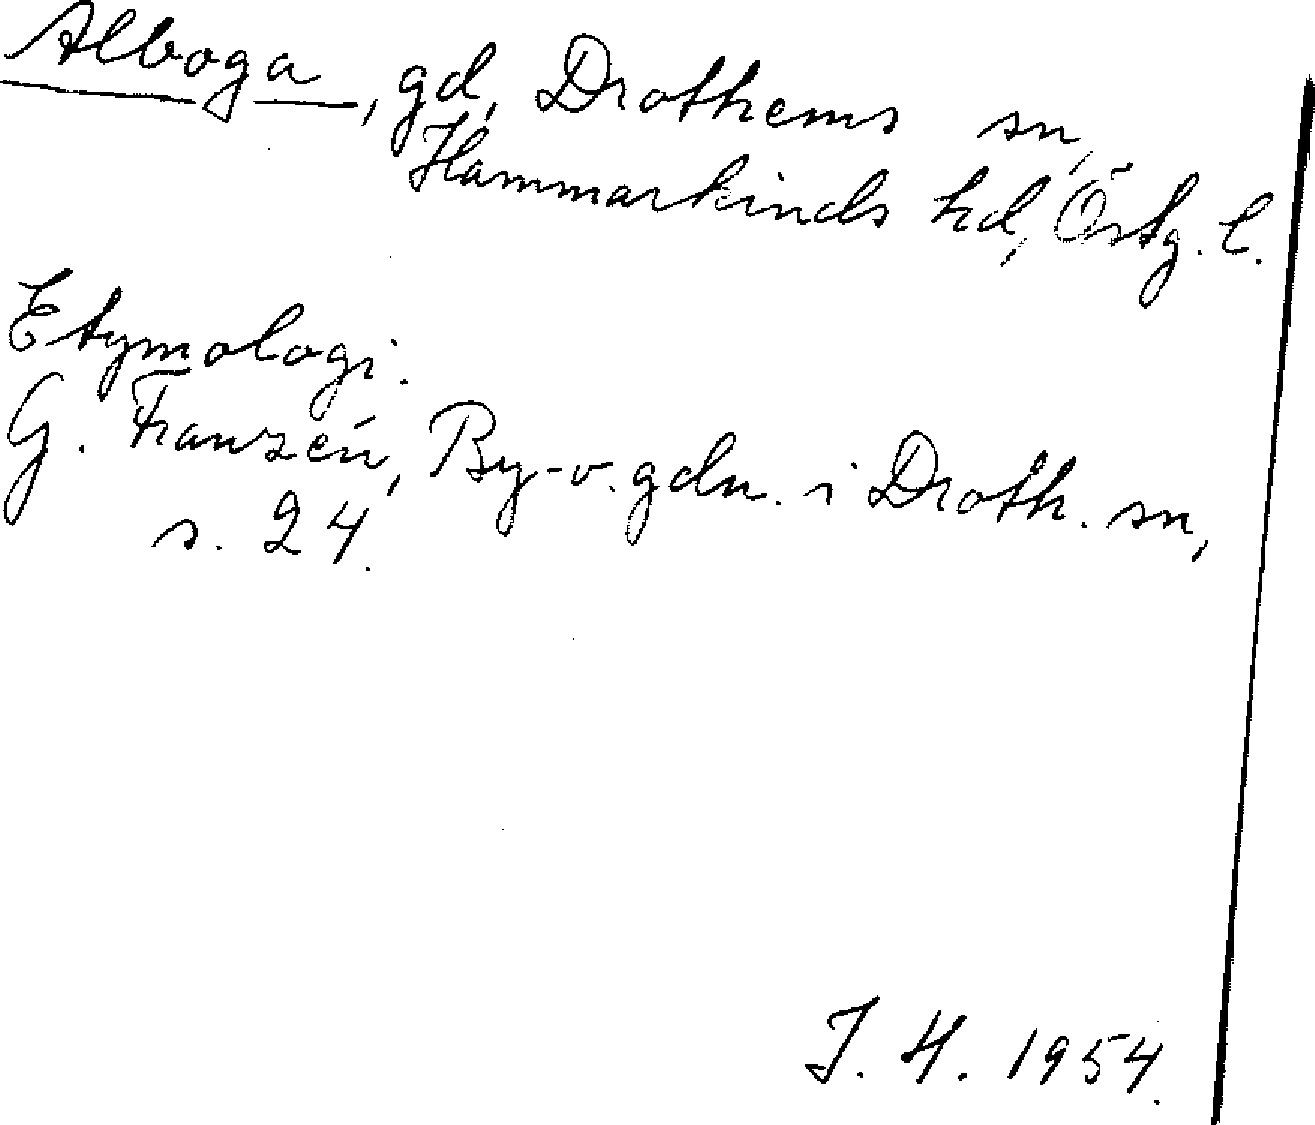 Alboga, gd, Drothems sn,
Hammarkinds hd, Östg. l.
Etymologi.
G. Franzén, By- o. gdn. i Droth. sn,
s. 24.
J. H. 1954.